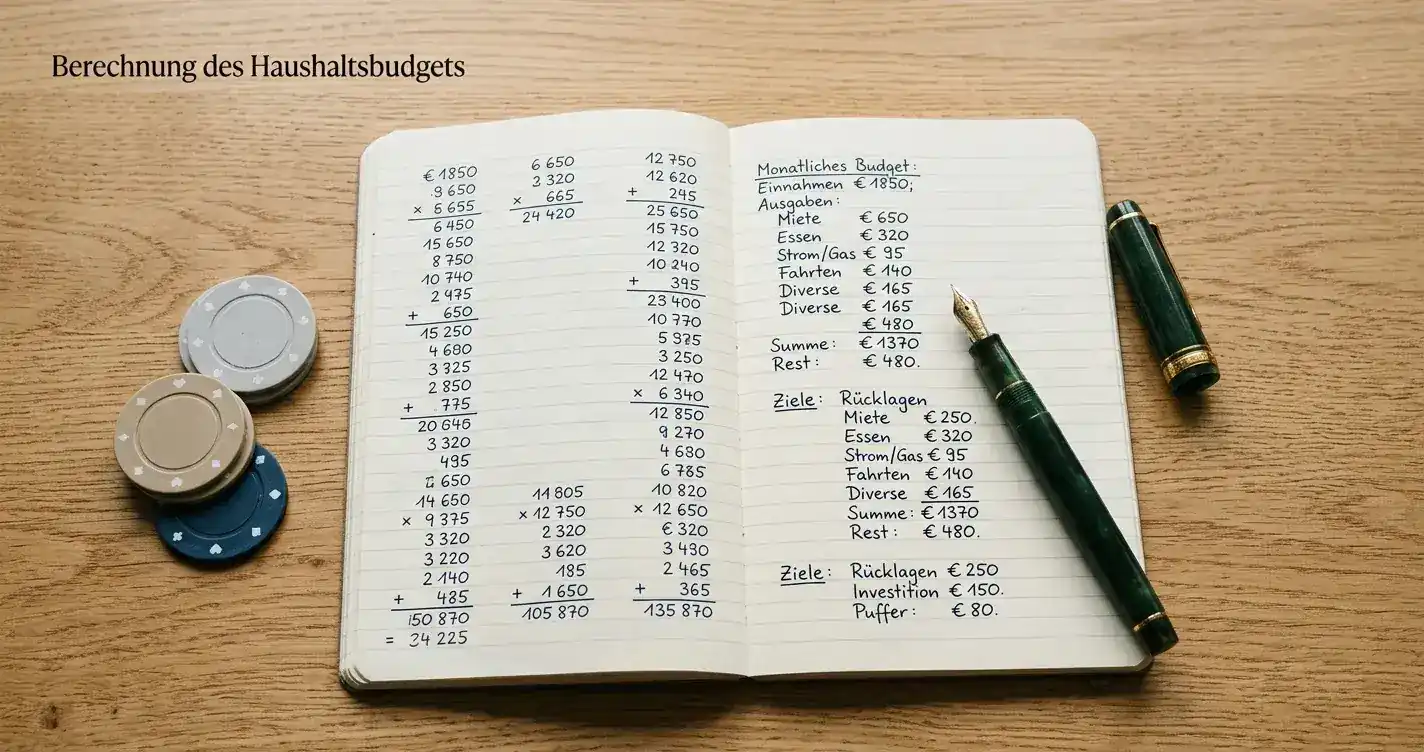 Berechnung des Haushaltsbudgets
€ 1850
9 650
× 6 655
6 450
15 650
8 750
10 740
2 475
+ 650
15 250
4 680
3 325
2 850
+ 775
20 646
3 320
495
650
14 650
× 9 375
3 320
3 220
2 140
+ 485
150 870
= 34 225
6 650
3 320
× 665
24 420
11 805
× 12 750
2 320
3 620
185
+ 1 650
105 870
12 750
12 620
+ 245
25 650
15 750
12 320
10 240
+ 395
23 400
10 770
5 375
3 250
12 470
× 6 340
12 850
9 270
4 680
6 785
10 820
× 12 650
€ 320
3 490
2 465
+ 365
135 870
Monatliches Budget:
Einnahmen € 1850;
Ausgaben:
Miete € 650
Essen € 320
Strom/Gas € 95
Fahrten € 140
Diverse € 165
Diverse € 165
€ 480
Summe: € 1370
Rest: € 480.
Ziele: Rücklagen
Miete € 250.
Essen € 320
Strom/Gas € 95
Fahrten € 140
Diverse € 165
Summe: € 1370
Rest: € 480.
Ziele: Rücklagen € 250
Investition € 150.
Puffer: € 80.